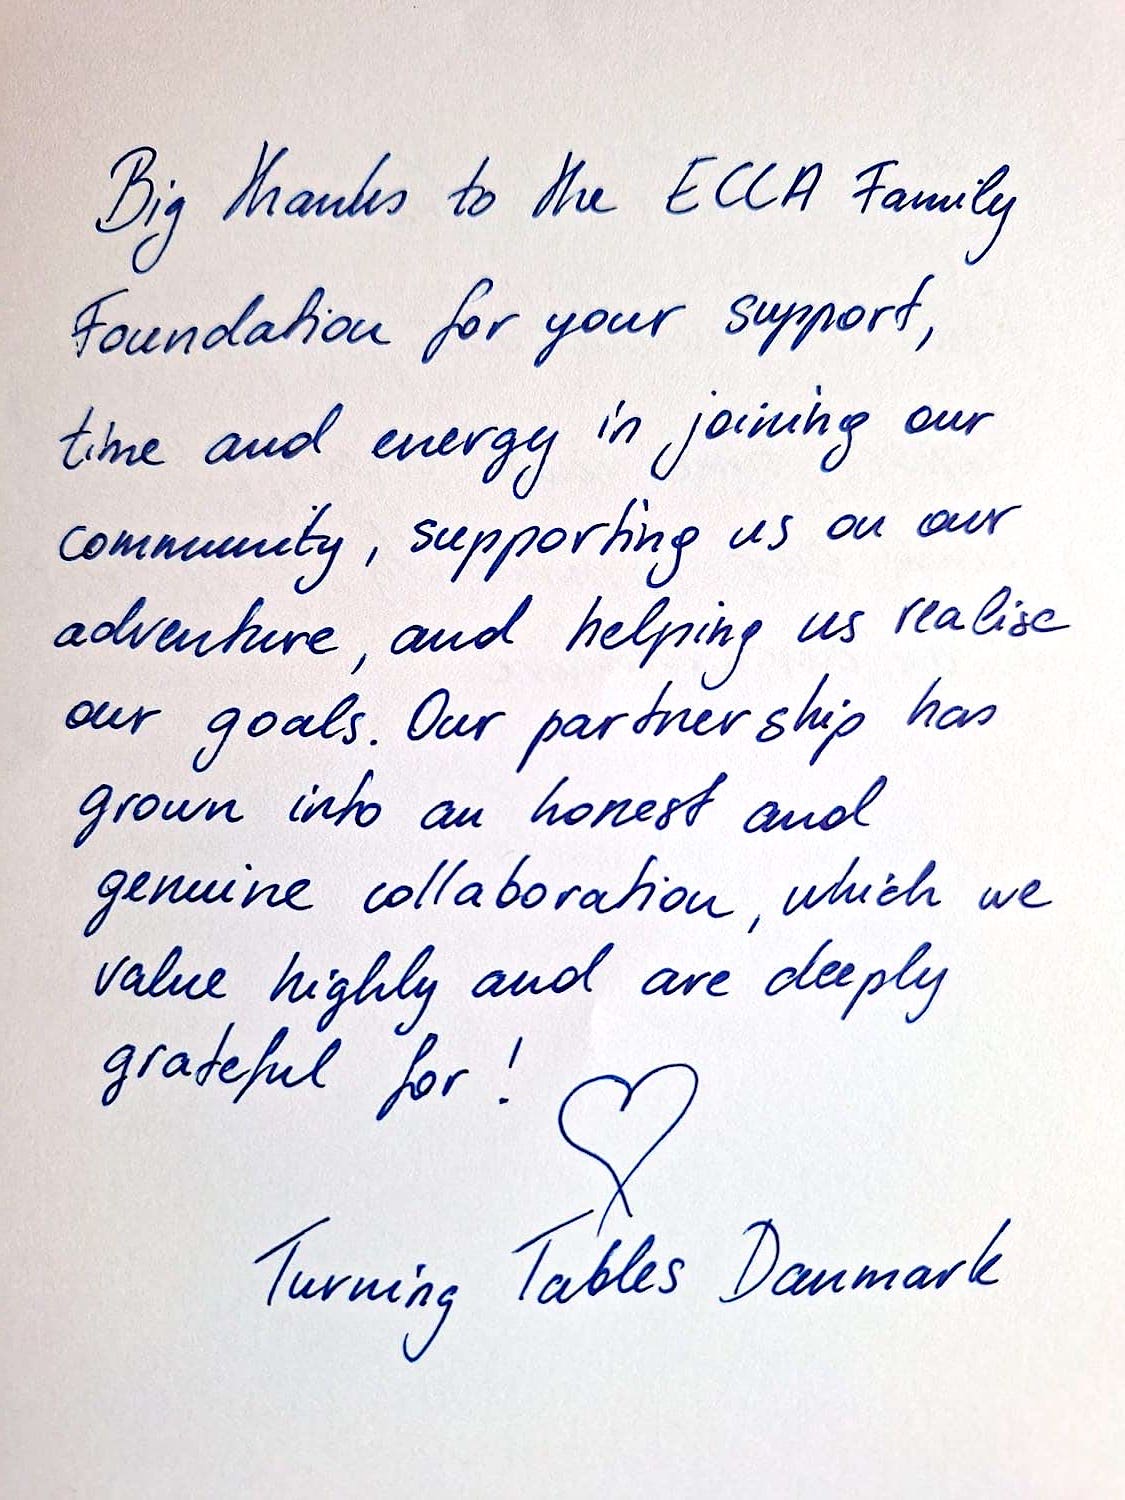 Big thanks to the ECCA Family
Foundation for your support,
time and energy in joining our
community, supporting us on our
adventure, and helping us realise
our goals. Our partnership has
grown into an honest and
genuine collaboration, which we
value highly and are deeply
grateful for!
Turning Tables Danmark